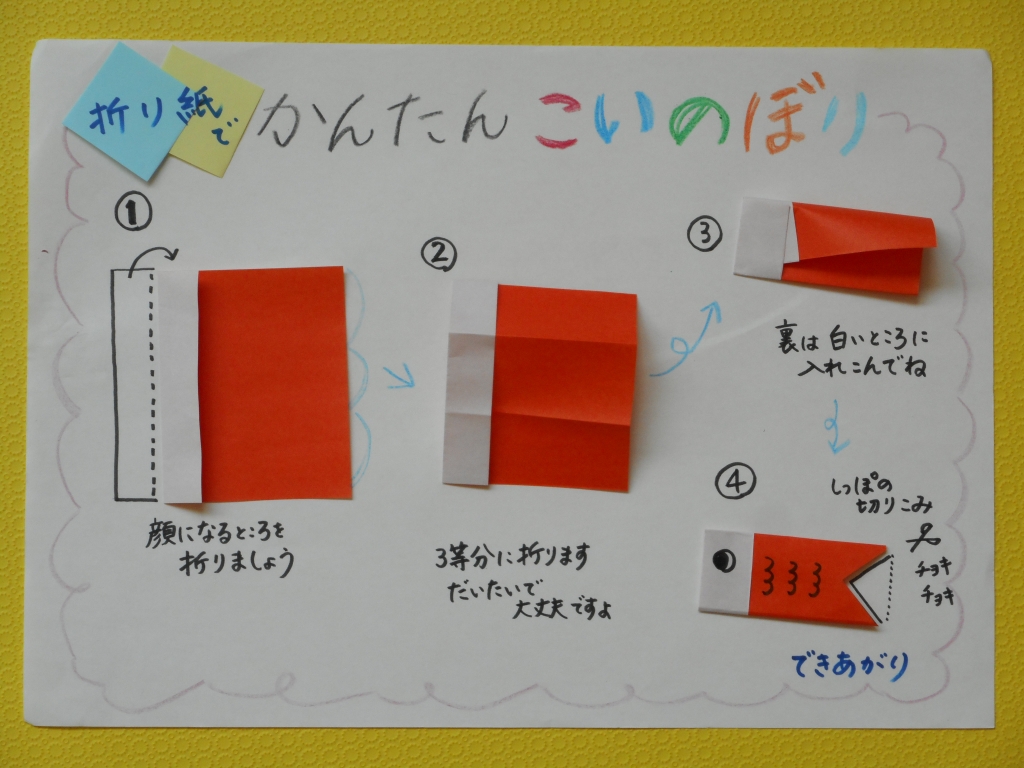 折り紙で
かんたん こいのぼり
①
顔になるところを
折りましょう
②
3等分に折ります
だいたいで
大丈夫ですよ
③
裏は白いところに
入れこんでね
④
しっぽの
切りこみ
チョキ
チョキ
できあがり